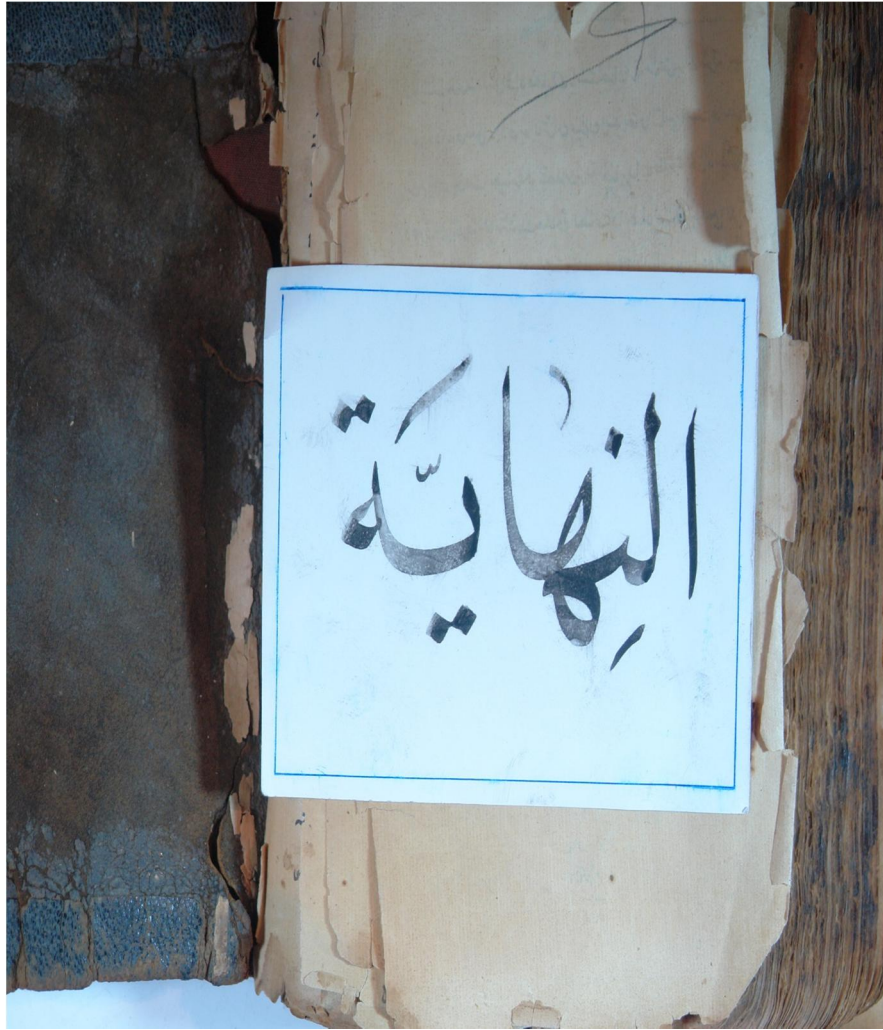 النِهايَّة